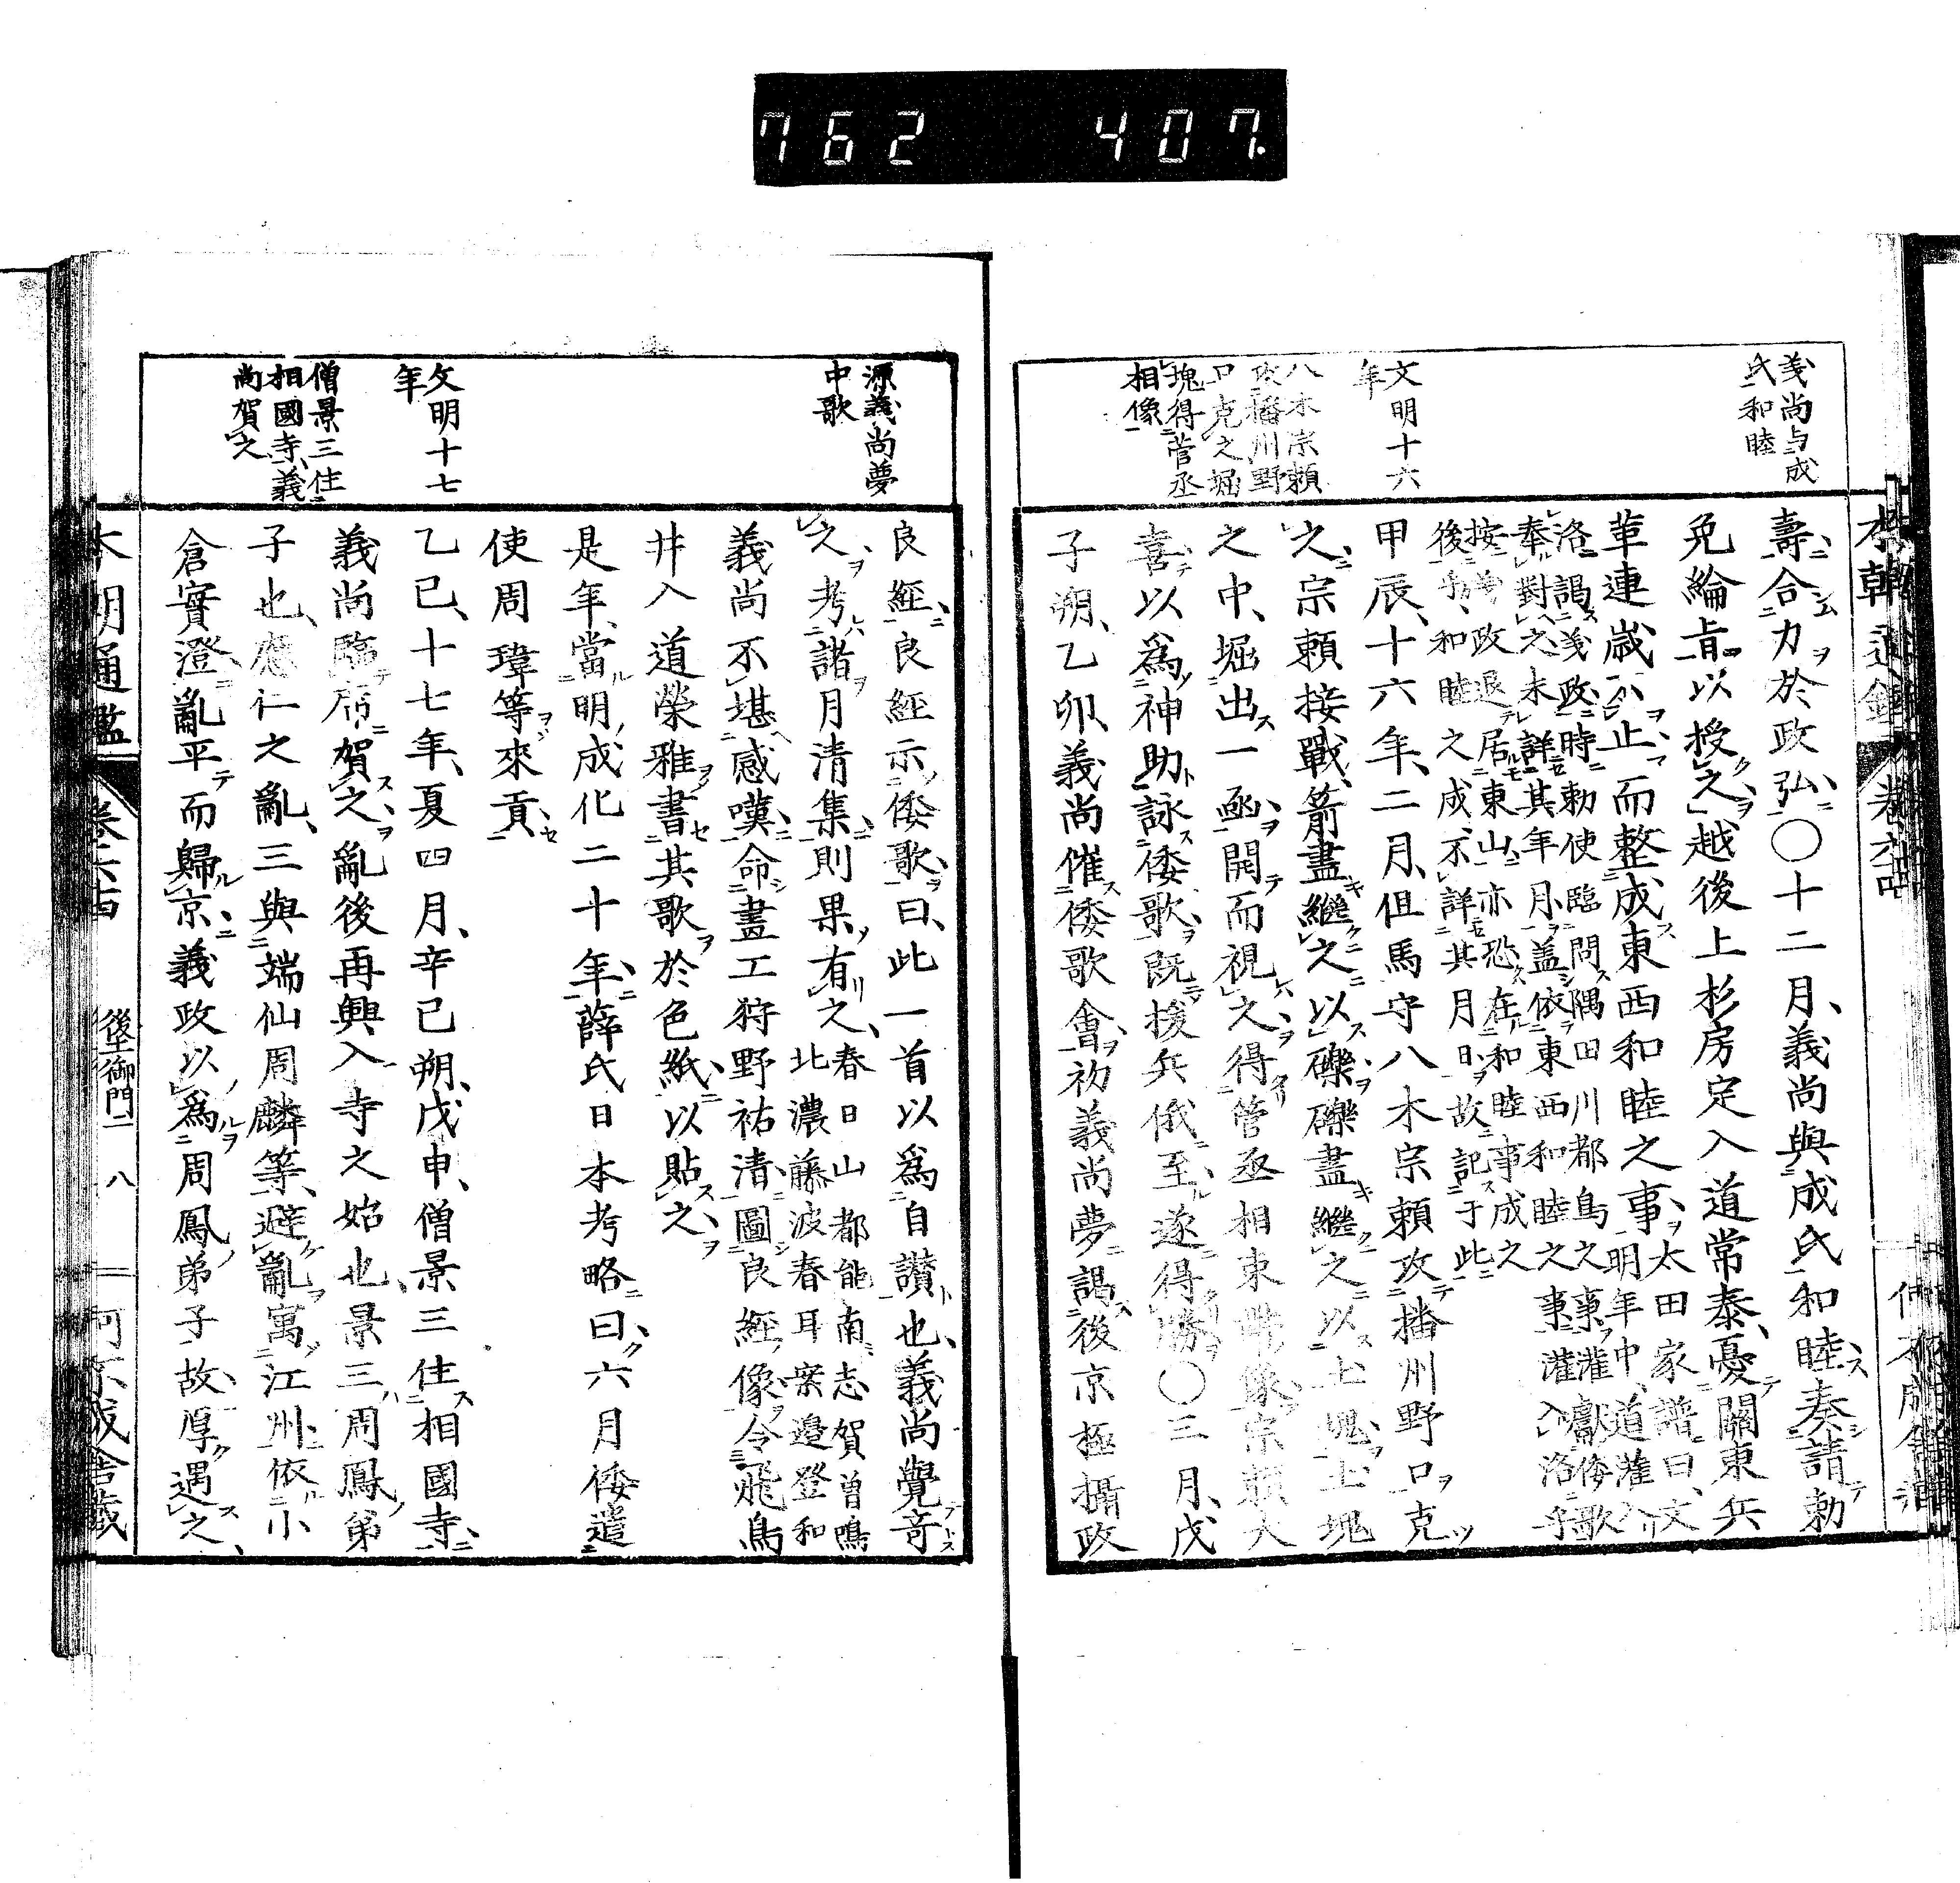 762 407.
義尚与成
氏和睦
文明十六
年
八木宗賴
攻播州野
口克之堀
塊得菅丞
相像
壽合力於政弘〇十二月義尚與成氏和睦奏請勅
免綸旨以授之越後上杉房定入道常泰憂關東兵
革連歲不止而整成東西和睦之事太田家譜曰文
明年中道灌入
洛謁義政時勅使臨問隅田川都鳥之事灌獻倭歌
奉對之未詳其年月盖依東西和睦之事灌入洛乎
按義政退居東山亦恐在和睦事成之
後乎和睦之成不詳其月日故記于此
甲辰十六年二月但馬守八木宗賴攻播州野口克
之宗賴接戰箭盡繼之以礫礫盡繼之以土塊土塊
之中堀出一函開而視之得菅丞相束帶像宗賴大
喜以爲神助詠倭歌既援兵俄至遂得勝〇三月戊
子朔乙卯義尚催倭歌會初義尚夢謁後京極攝政
源義尚夢
中歌
文明十七
年
僧景三住
相國寺義
尚賀之
良經良經示倭歌曰此一首以爲自讃也義尚覺竒
之考諸月清集則果有之春日山都能南志賀曽鳴
北濃藤波春耳案邉登和
義尚不堪感嘆命畫工狩野祐清圖良經像令飛鳥
井入道榮雅書其歌於色紙以貼之
是年當明成化二十年薛氏日本考略曰六月倭遣
使周瑋等來貢
乙巳十七年夏四月辛巳朔戊申僧景三住相國寺
義尚臨席賀之亂後再興入寺之始也景三周鳳弟
子也應仁之亂三與端仙周麟等避亂寓江州依小
倉實澄亂平而歸京義政以爲周鳳弟子故厚遇之
本朝通鑑 後土御門二 八